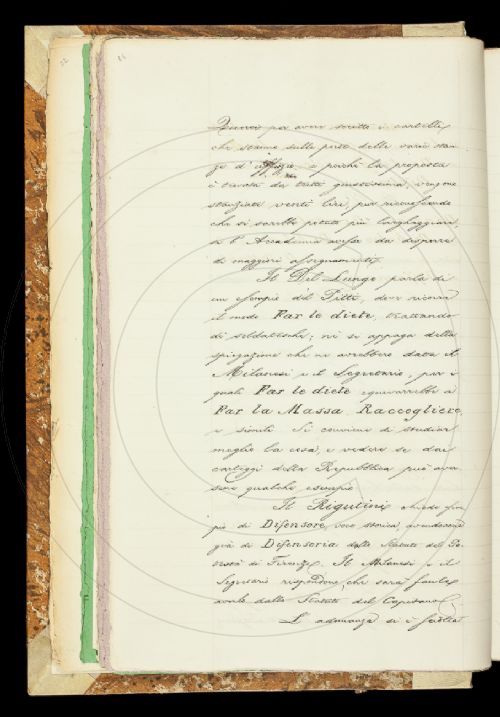 per avere scritto i cartelli
che stanno sulle porte delle varie stan-
ze d'uffizio e perché la proposta
è trovata da tutti giustissima, vengono
stanziate venti lire, pur riconoscendo
che si sarebbe potuto più largheggiare,
se l'Accademia avesse da disporre
di maggiori assegnamenti.
Il Del Lungo parla di
un esempio del Pitti, dove ricorre
il modo Far le diete, trattando
di soldatesche; né si appaga della
spiegazione che ne avrebbero data il
Milanesi e il Segretario, per i
quali Far le diete equivarrebbe a
Far la Massa, Raccogliere
e simili. Si conviene di studiar
meglio la cosa, e vedere se dai
carteggi della Repubblica può aver
sene qualche esempio.
Il Rigutini chiede
di Difensore, voce storica, avendosene
già di Difensoria dallo Statuto del Po-
testà di Firenze. Il Milanesi e il
Segretario rispondono, che sarà facile
averlo dallo Statuto del Capitano.
L'adunanza si è sciolta